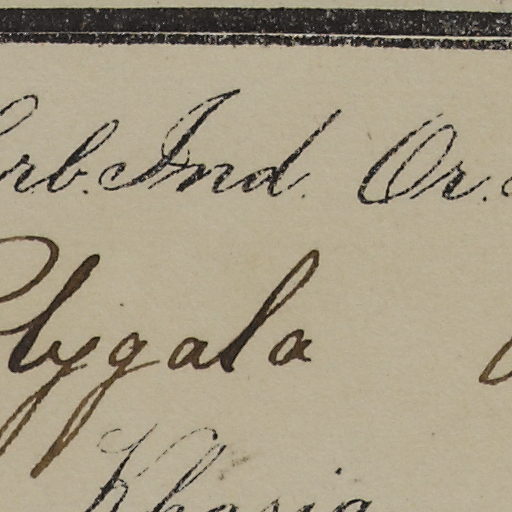 erb. Ind. Or.
Polygala
Khasia